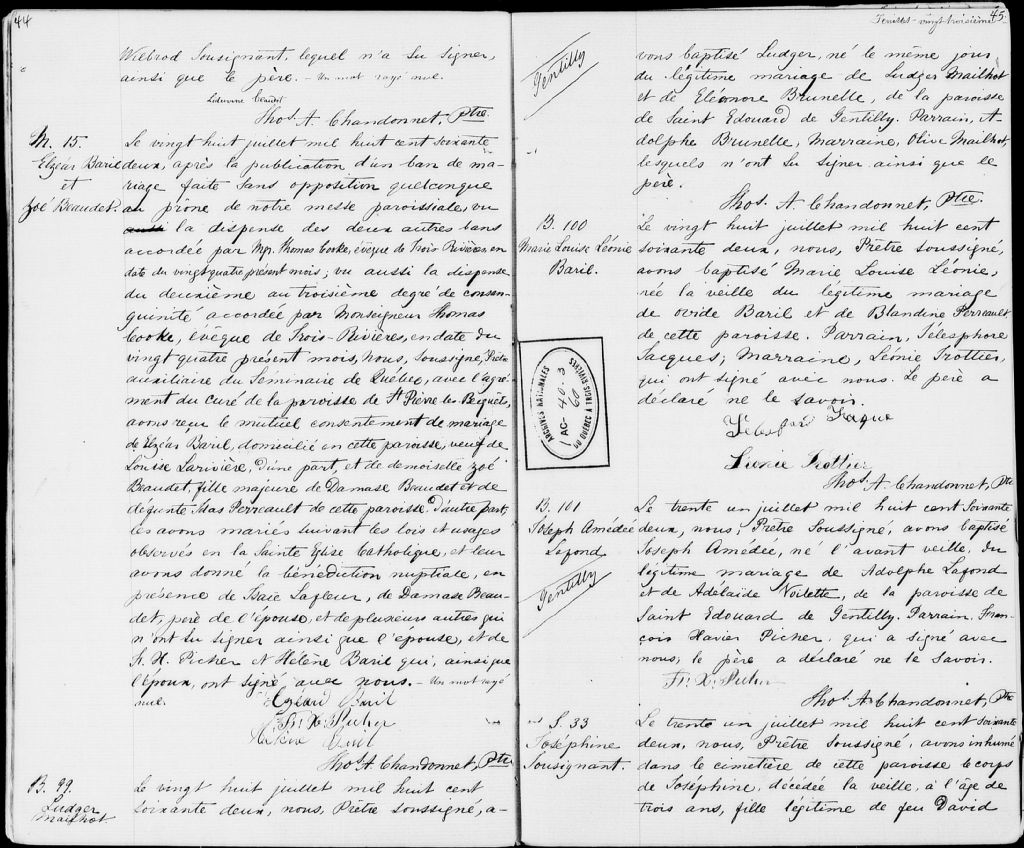 44
Wilbrod Sousignant, lequel n'a su signer,
ainsi que le père. — Un mot rayé nul.
Ths. A. Chandonnet, Ptre.
M. 15.
Elzéar Baril
et
Zoé Beaudet.
Le vingt huit juillet mil huit cent soixante
deux, après la publication d'un ban de ma-
riage faite sans opposition quelconque
au prône de notre messe paroissiale, vu
la dispense des deux autres bans
accordée par Mgr. Thomas Cooke, évêque de Trois Rivières, en
date du vingt quatre présent mois; vu aussi la dispense
du deuxième au troisième degré de consan-
guinité accordée par Monseigneur Thomas
Cooke, évêque de Trois-Rivières, en date du
vingt quatre présent mois, Nous, soussigné, Prêtre
auxiliaire du Séminaire de Québec, avec l'agré-
ment du curé de la paroisse de St Pierre les Becquets,
avons reçu le mutuel consentement de mariage
de Elzéar Baril, domicilié en cette paroisse, veuf de
Louise Larivière, d'une part, et de demoiselle Zoé
Beaudet, fille majeure de Damase Beaudet et de
défunte Perreault de cette paroisse d'autre part,
les avons mariés suivant les lois et usages
observés en la Sainte Eglise Catholique, et leur
avons donné la bénédiction nuptiale, en
présence de Isaïe Lafleur, de Damase Beau-
det, père de l'épouse, et de plusieurs autres qui
n'ont su signer ainsi que l'épouse, et de
F. X. Picher et Hélène Baril qui, ainsi que
l'époux, ont signé avec nous. — Un mot rayé
nul.
Elzéard Baril
F. X. Picher
Ths. A. Chandonnet, Ptre
B. 99.
Ludger
Mailhot
Le vingt huit juillet mil huit cent
soixante deux, nous, Prêtre soussigné, a-
Feuillet - vingt-troisième
45.
Gentilly
vons baptisé Ludger, né le même jour
du légitime mariage de Ludger Mailhot
et de Eléonore Brunelle, de la paroisse
de Saint Edouard de Gentilly. Parrain, A-
dolphe Brunelle, Marraine, Olive Mailhot,
lesquels n'ont su signer ainsi que le
père.
Ths. A. Chandonnet, Ptre.
B. 100
Marie Louise Léonie
Baril.
Le vingt huit juillet mil huit cent
soixante deux, nous, Prêtre soussigné,
avons baptisé Marie Louise Léonie,
née la veille du légitime mariage
de Ovide Baril et de Blandine Perreault
de cette paroisse. Parrain, Télesphore
Jacques; Marraine, Léonie Trottier,
qui ont signé avec nous. Le père a
déclaré ne le savoir.
Léonie Trottier
Ths. A. Chandonnet, Ptre
ARCHIVES NATIONALES
AC- 40-3
60
DU QUÉBEC À TROIS-RIVIÈRES
B. 101
Joseph Amédée
Lafond
Gentilly
Le trente un juillet mil huit cent soixante
deux, nous, Prêtre Soussigné, avons baptisé
Joseph Amédée, né l'avant veille, du
légitime mariage de Adolphe Lafond
et de Adélaïde Noilette, de la paroisse de
Saint Edouard de Gentilly. Parrain, Fran-
çois Xavier Picher, qui a signé avec
nous, le père a déclaré ne le savoir.
Fr. X. Picher
Ths. A. Chandonnet, Ptre
S. 33
Joséphine
Sousignant.
Le trente un juillet mil huit cent soixante
deux, nous, Prêtre Soussigné, avons inhumé
dans le cimetière de cette paroisse le corps
de Joséphine, décédée la veille, à l'âge de
trois ans, fille légitime de feu David